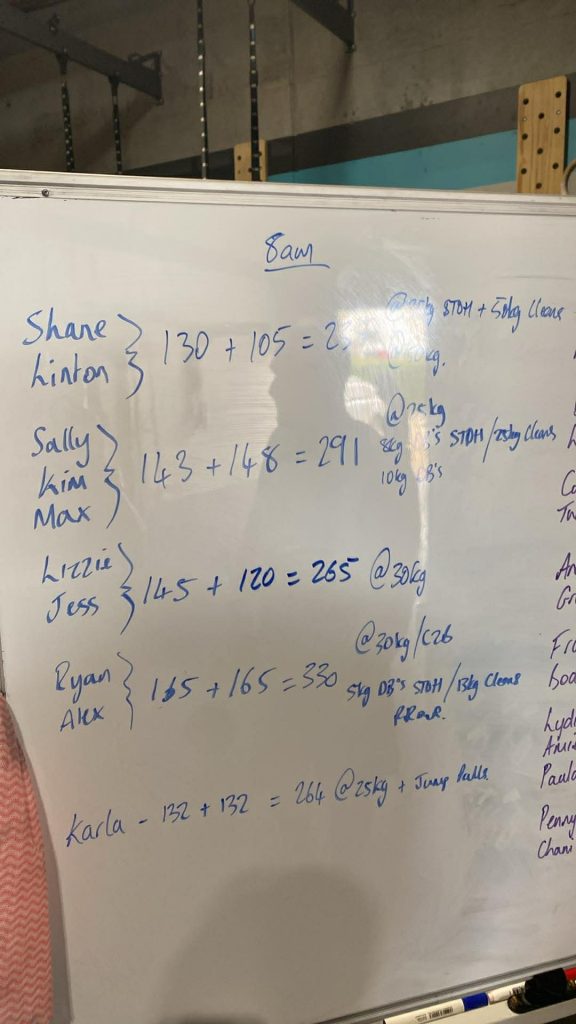 8am
Shane
Linton
130 + 105 = 2
STOH + 50kg Cleans
Sally
Kim
Max
143 + 148 = 291
@25kg
8kg DB's STOH / 25kg Cleans
10kg DB's
Lizzie
Jess
145 + 120 = 265 @30kg
Ryan
Alex
165 + 165 = 330
@30kg/
5kg DB's STOH / 13kg Cleans
Karla - 132 + 132 = 264 @25kg + Jump Pulls
Penny
Chani